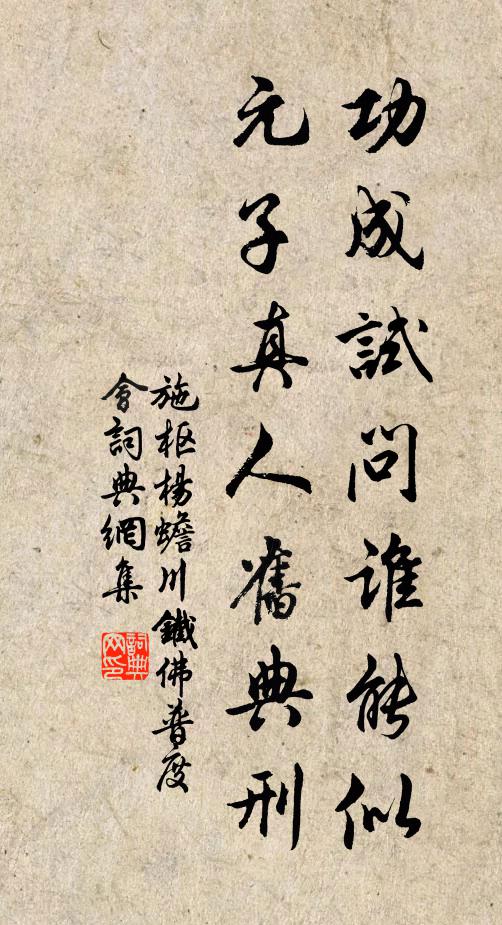 功成試問誰能似
元子真人舊典刑
施枢楊蟾川鐵佛普度
會詞典網集
詞典网印